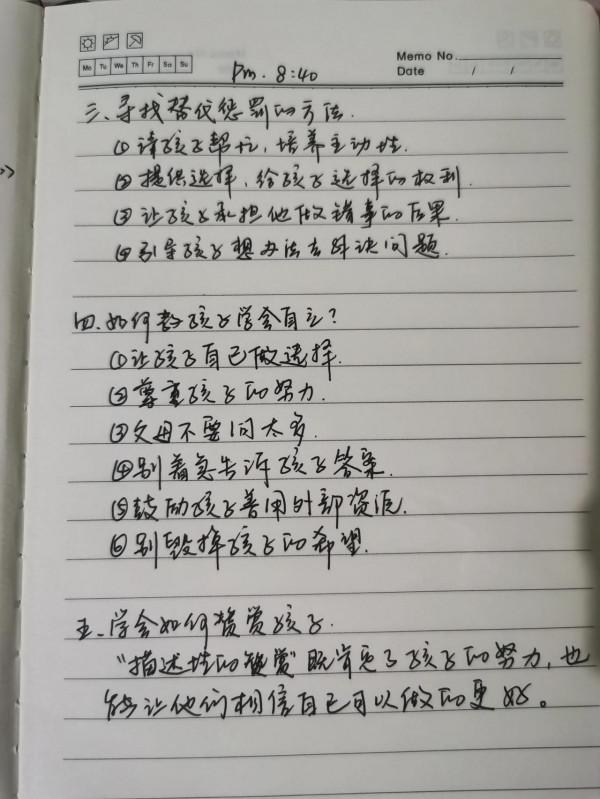 Mo Tu We Th Fr Sa Su
Pm. 8:40
Memo No.
Date / /
三、寻找替代惩罚的方法.
①请孩子帮忙,培养主动性.
②提供选择,给孩子选择的权利.
③让孩子承担他做错事的后果.
④引导孩子想办法去解决问题.
四、如何教孩子学会自立?
①让孩子自己做选择.
②尊重孩子的努力.
③父母不要问太多.
④别着急告诉孩子答案.
⑤鼓励孩子善用外部资源.
⑥别毁掉孩子的希望.
五、学会如何赞赏孩子.
“描述性的赞赏”既肯定了孩子的努力,也
能让他们相信自己可以做的更好。